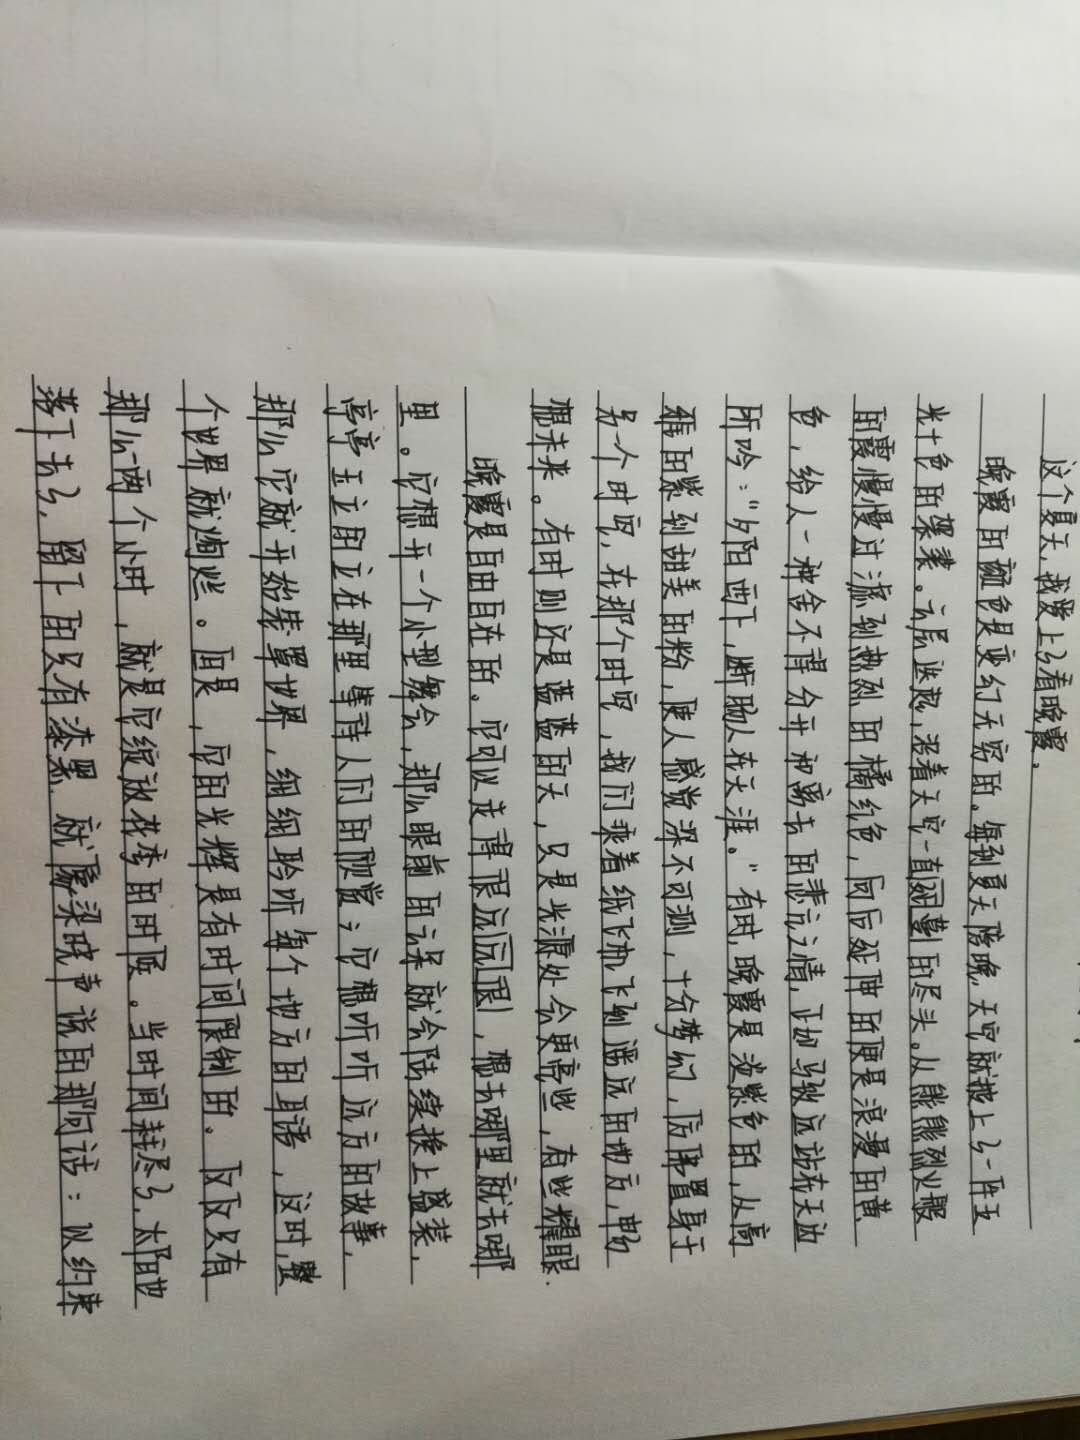 这个夏天，我爱上了看晚霞。
晚霞的颜色是变幻无穷的。每到夏天傍晚，天空就披上了一件五
光十色的袈裟。云层迭起，沿着天空一直到的尽头。从熊熊烈火般
的霞慢慢过滤到热烈的橘红色，向后延伸的便是浪漫的黄
色，给人一种舍不得分开和离去的悲之情，正如马致远站在天边
所吟：“夕阳西下，断肠人在天涯。”有时，晚霞是淡紫色的，从高
雅的紫到甜美的粉，使人感觉深不可测，十分梦幻，仿佛置身于
另一个时空，在那个时空，我们乘着纸飞机飞到遥远的地方，畅
想未来。有时则还是蓝蓝的天，只是光源处会更亮些，有些耀眼.
晚霞是自由自在的。它可以走得很远很远，想去哪里就去哪
里。它想开一个小型舞会，那么眼前的云朵就会陆续换上盛装，
亭亭玉立的立在那里等待人们的欣赏；它想听听远方的故事，
那么它就开始笼罩世界，细细聆听每个地方的耳语，这时，整
个世界就绚烂。但是，它的光辉是有时间限制的。仅仅只有
那么一两个小时，就是它绽放花季的时候。当时间耗尽了，太阳也
落下去了，留下的只有漆黑，就像梁晓声说的那句话：以约束